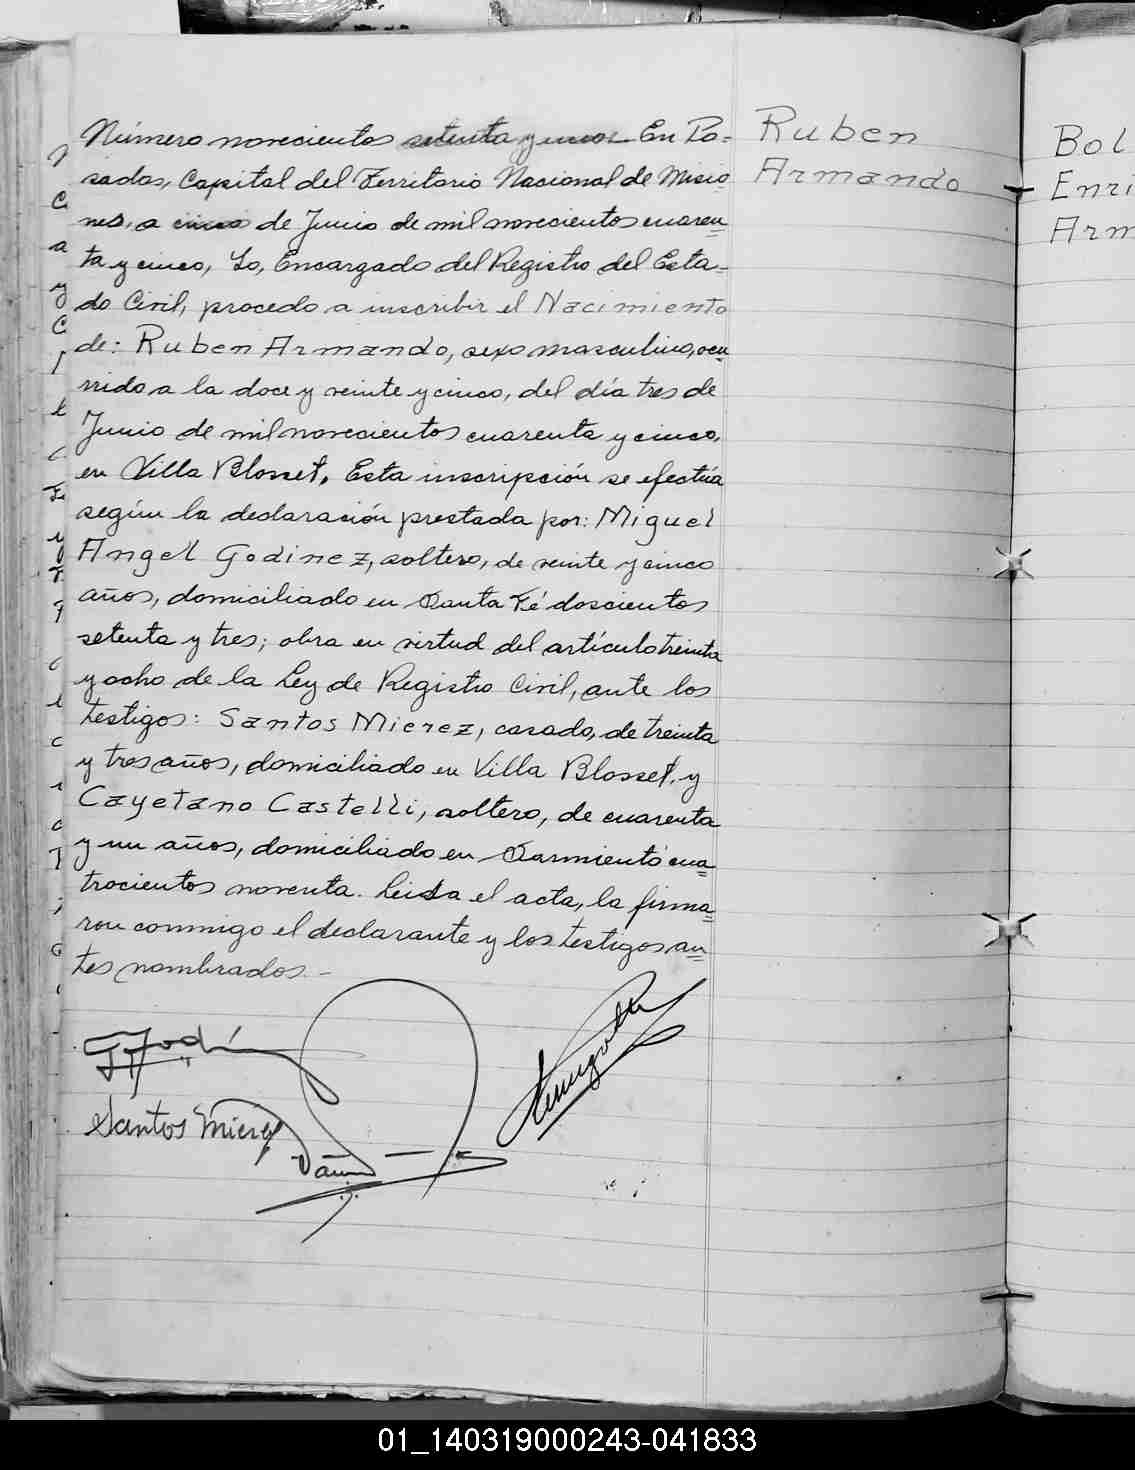 Número novecientos setenta y uno En Po-
sadas, Capital del Territorio Nacional de Misio
nes, a cinco de Junio de mil novecientos cuaren
ta y cinco, Yo, Encargado del Registro del Esta-
do Civil, procedo a inscribir el Nacimiento
de: Ruben Armando, sexo masculino, ocu
rrido a la doce y veinte y cinco, del día tres de
Junio de mil novecientos cuarenta y cinco,
en Villa Blosset, Esta inscripción se efectúa
según la declaración prestada por: Miguel
Angel Godinez, soltero, de veinte y cinco
años, domiciliado en Santa Fé doscientos
setenta y tres; obra en virtud del artículo treinta
y ocho de la Ley de Registro Civil, ante los
testigos: Santos Mierez, casado, de treinta
y tres años, domiciliado en Villa Blosset, y
Cayetano Castelli, soltero, de cuarenta
y un años, domiciliado en Sarmiento cua
trocientos noventa. Leida el acta, la firma
ron conmigo el declarante y los testigos an
tes nombrados.-
Santos Mierez
Ruben
Armando
Bol
Enri
Arm
01_140319000243-041833